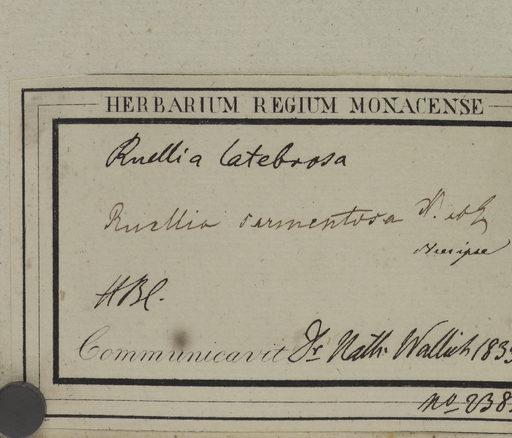 HERBARIUM REGIUM MONACENSE
Ruellia latebrosa
Ruellia sarmentosa N. ab E
Nees ipse
HBC.
Communicavit Dr Nath. Wallich 183
No 238